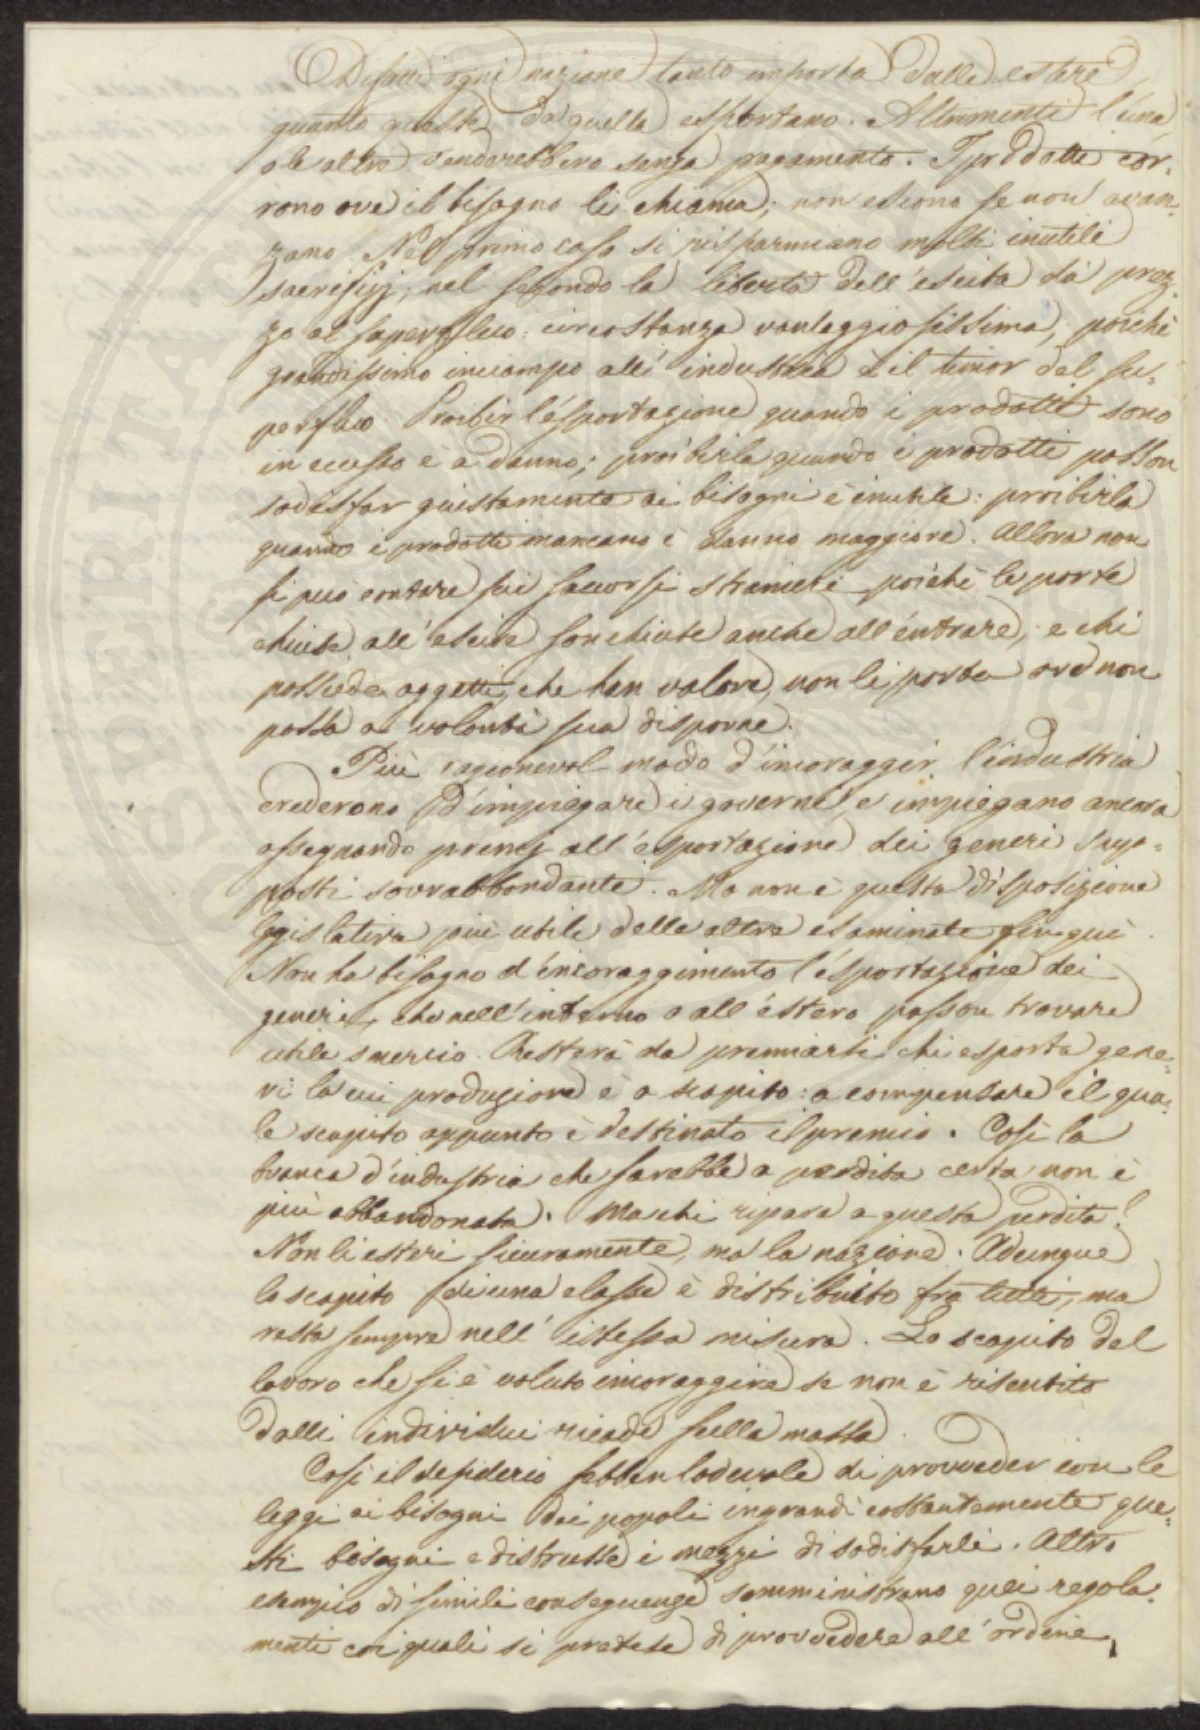 Difatti ogni nazione tanto importa dalle estere
quanto queste da quella esportano. Altrimenti l'una
o le altre venderebbero senza pagamento. I prodotti cor-
rono ove il bisogno li chiama; non escono se non avan-
zano. Nel primo caso si risparmiano molti inutili
sacrifizj; nel secondo la libertà dell'escita dà prez-
zo al superfluo: circostanza vantaggiosissima, poichè
grandissimo inciampo all'industria è il timor del su-
perfluo. Proibir l'esportazione quando i prodotti sono
in eccesso è a danno; proibirla quando i prodotti posson
sodisfar giustamente ai bisogni è inutile: proibirla
quando i prodotti mancano è danno maggiore. Allora non
si può contare sui soccorsi stranieri poichè le porte
chiuse all'escire son chiuse anche all'entrare, e chi
possiede oggetti, che han valore, non li porta ove non
possa a volontà sua disporne.
Più ragionevol modo d'incoraggir l'industria
crederono d'impiegare i governi, e impiegano ancora
assegnando premj all'esportazione dei generi sup-
posti sovrabbondanti. Ma non è questa disposizione
legislativa più utile delle altre esaminate fin qui.
Non ha bisogno d'incoraggimento l'esportazione dei
generi, che nell'interno o all'estero posson trovare
utile smercio. Resterà da premiarsi chi esporta gene-
ri la cui produzione è a scapito: a compensare il qua-
le scapito appunto è destinato il premio. Così la
branca d'industria che sarebbe a perdita certa non è
più abbandonata. Ma chi ripara a questa perdita?
Non li esteri sicuramente, ma la nazione. Adunque
lo scapito di una classe è distribuito fra tutti, ma
resta sempre nell'istessa misura. Lo scapito del
lavoro che si è voluto incoraggire se non è risentito
dalli individui ricade sulla massa.
Così il desiderio sebben lodevole di provveder con le
leggi ai bisogni dei popoli ingrandì costantemente que-
sti bisogni e distrusse i mezzi di sodisfarli. Altro
esempio di simili conseguenze somministrano quei regola-
menti coi quali si pretese di provvedere all'ordine,